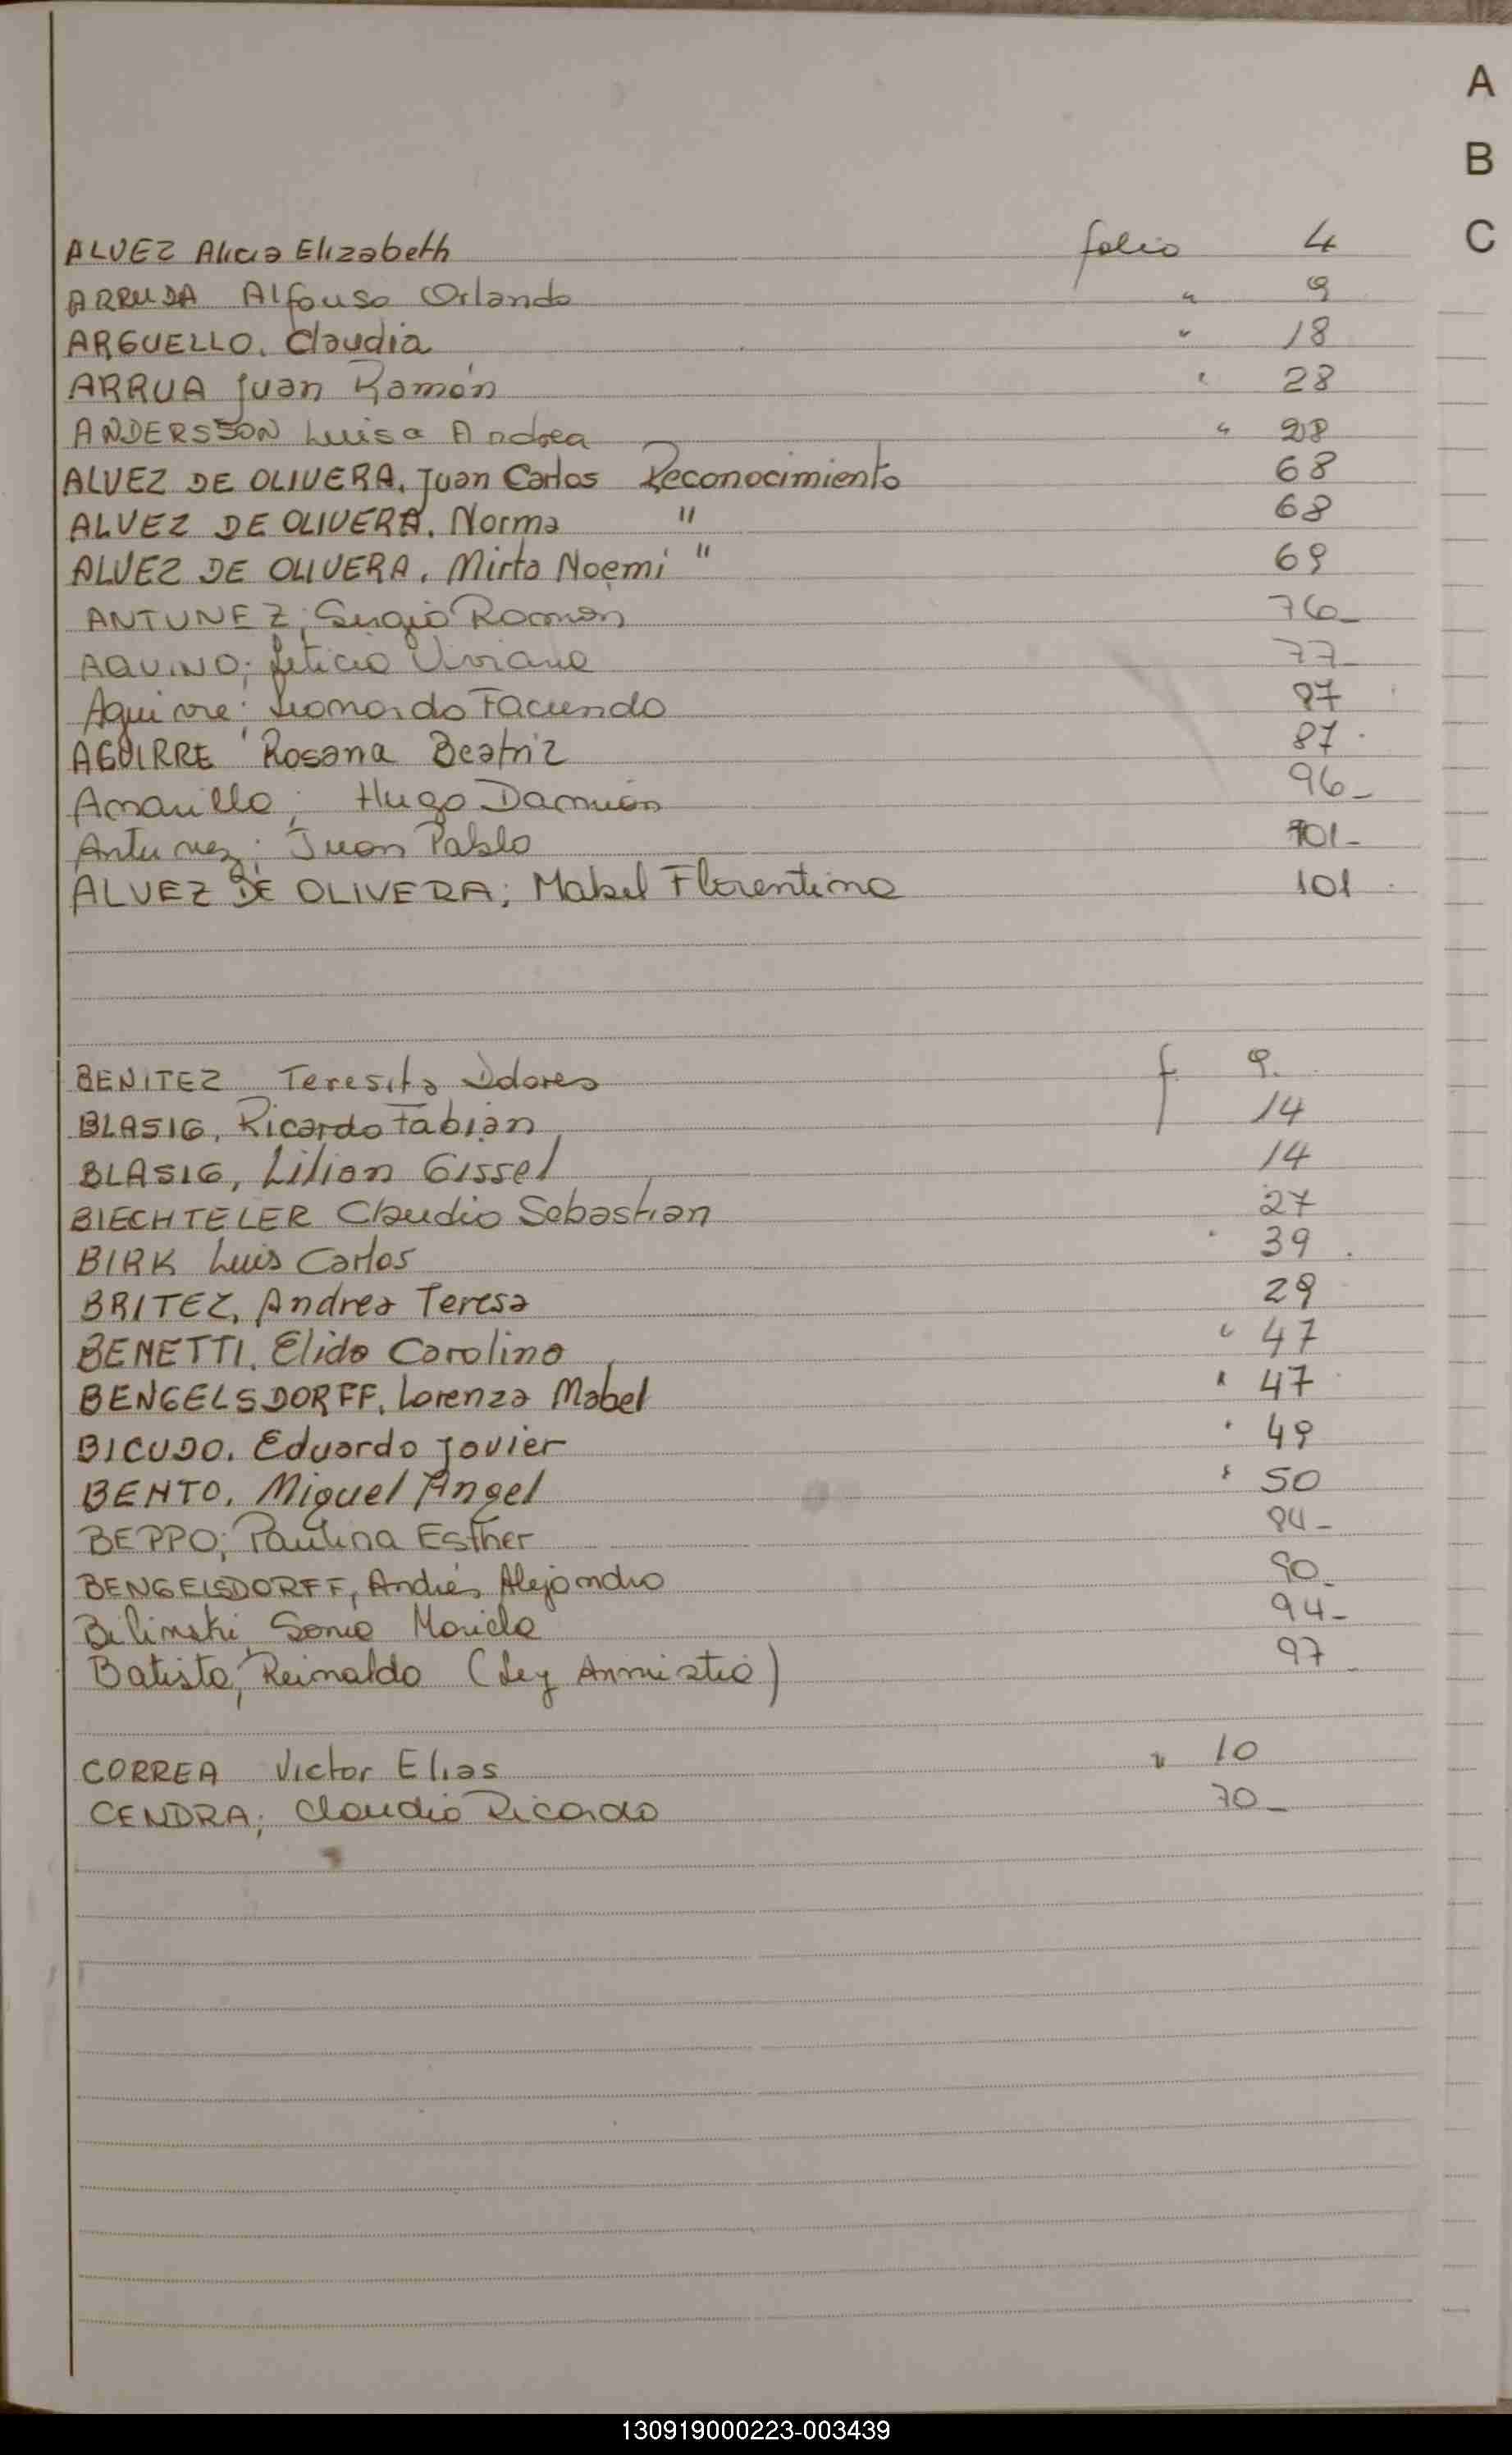 A
B
C
ALVEZ Alicia Elizabeth folio 4
ARRUDA Alfonso Orlando " 9
ARGUELLO, Claudia " 18
ARRUA Juan Ramón " 28
ANDERSSON Luisa Andrea " 28
ALVEZ DE OLIVERA, Juan Carlos Reconocimiento 68
ALVEZ DE OLIVERA, Norma " 68
ALVEZ DE OLIVERA, Mirta Noemi " 69
ANTUNEZ; Sergio Ramon 76-
AQUINO; Leticia Viviana 77-
Aguirre; Leonardo Facundo 87
AGUIRRE Rosana Beatriz 87
Amarillo; Hugo Damián 96-
Antunez; Juan Pablo 101-
ALVEZ DE OLIVERA; Mabel Florentina 101
BENITEZ Teresita Dolores f. 9.
BLASIG, Ricardo Fabián 14
BLASIG, Lilian Gissel 14
BIECHTELER Claudio Sebastian 27
BIRK Luis Carlos " 39
BRITEZ, Andrea Teresa 29
BENETTI, Elida Carolina " 47
BENGELSDORFF, Lorenza Mabel " 47
BICUDO, Eduardo Javier " 49
BENTO, Miguel Angel " 50
BEPPO; Paulina Esther 84-
BENGELSDORFF, Andrés Alejandro 90-
Bilinski, Sonia Mariela 94-
Batista, Reinaldo (Ley Amnistia) 97
CORREA Victor Elias " 10
CENDRA; Claudio Ricardo 70-
130919000223-003439